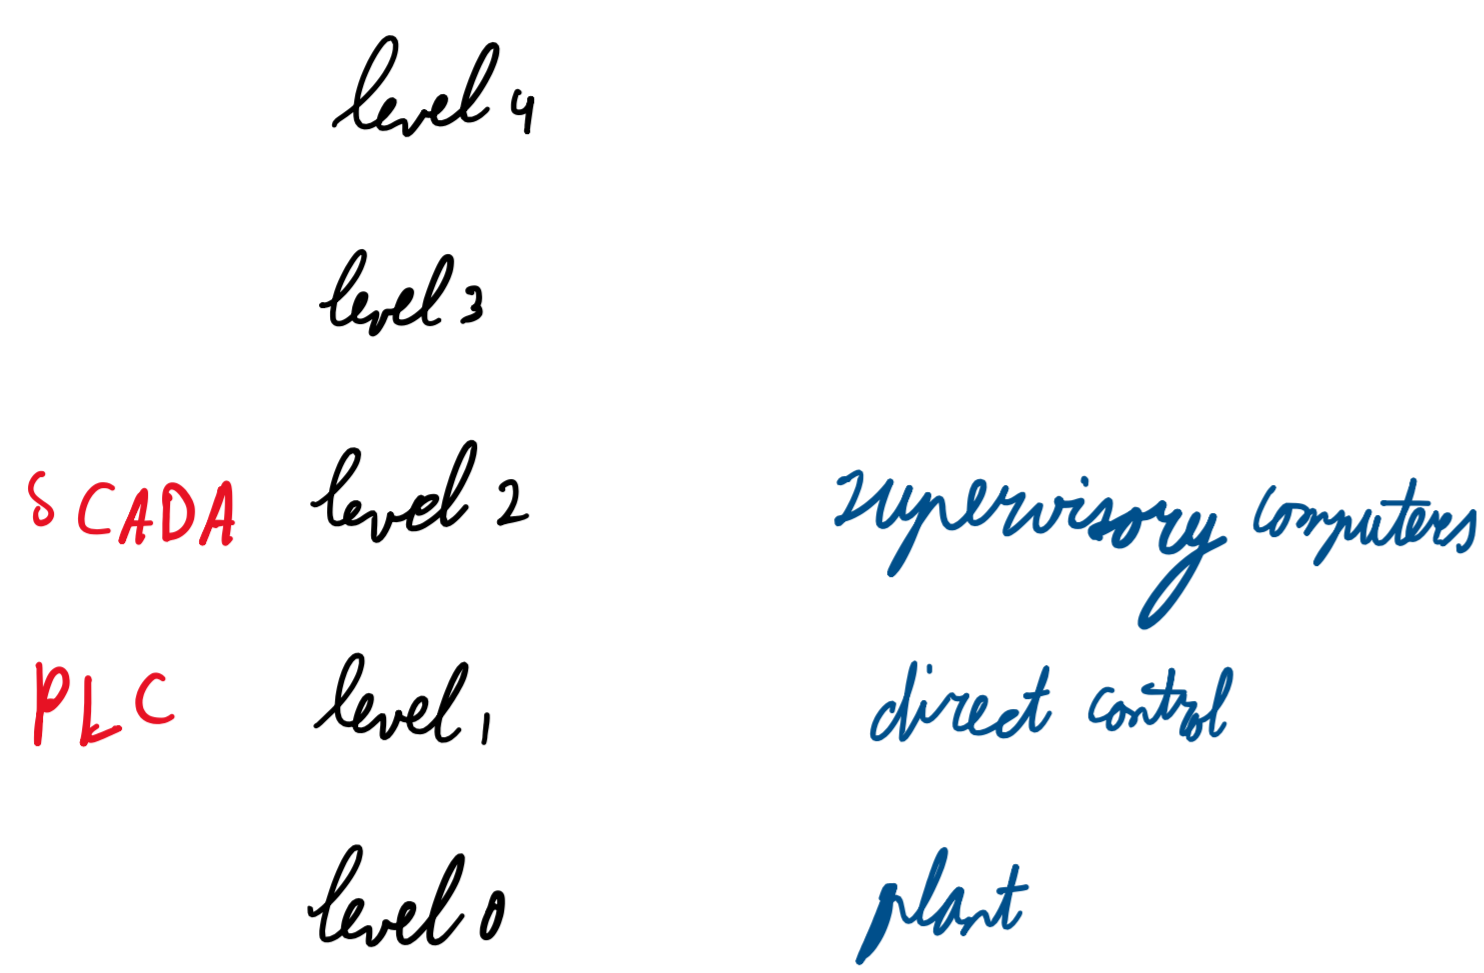 level 4
level 3
SCADA level 2 supervisory computers
PLC level 1 direct control
level 0 plant